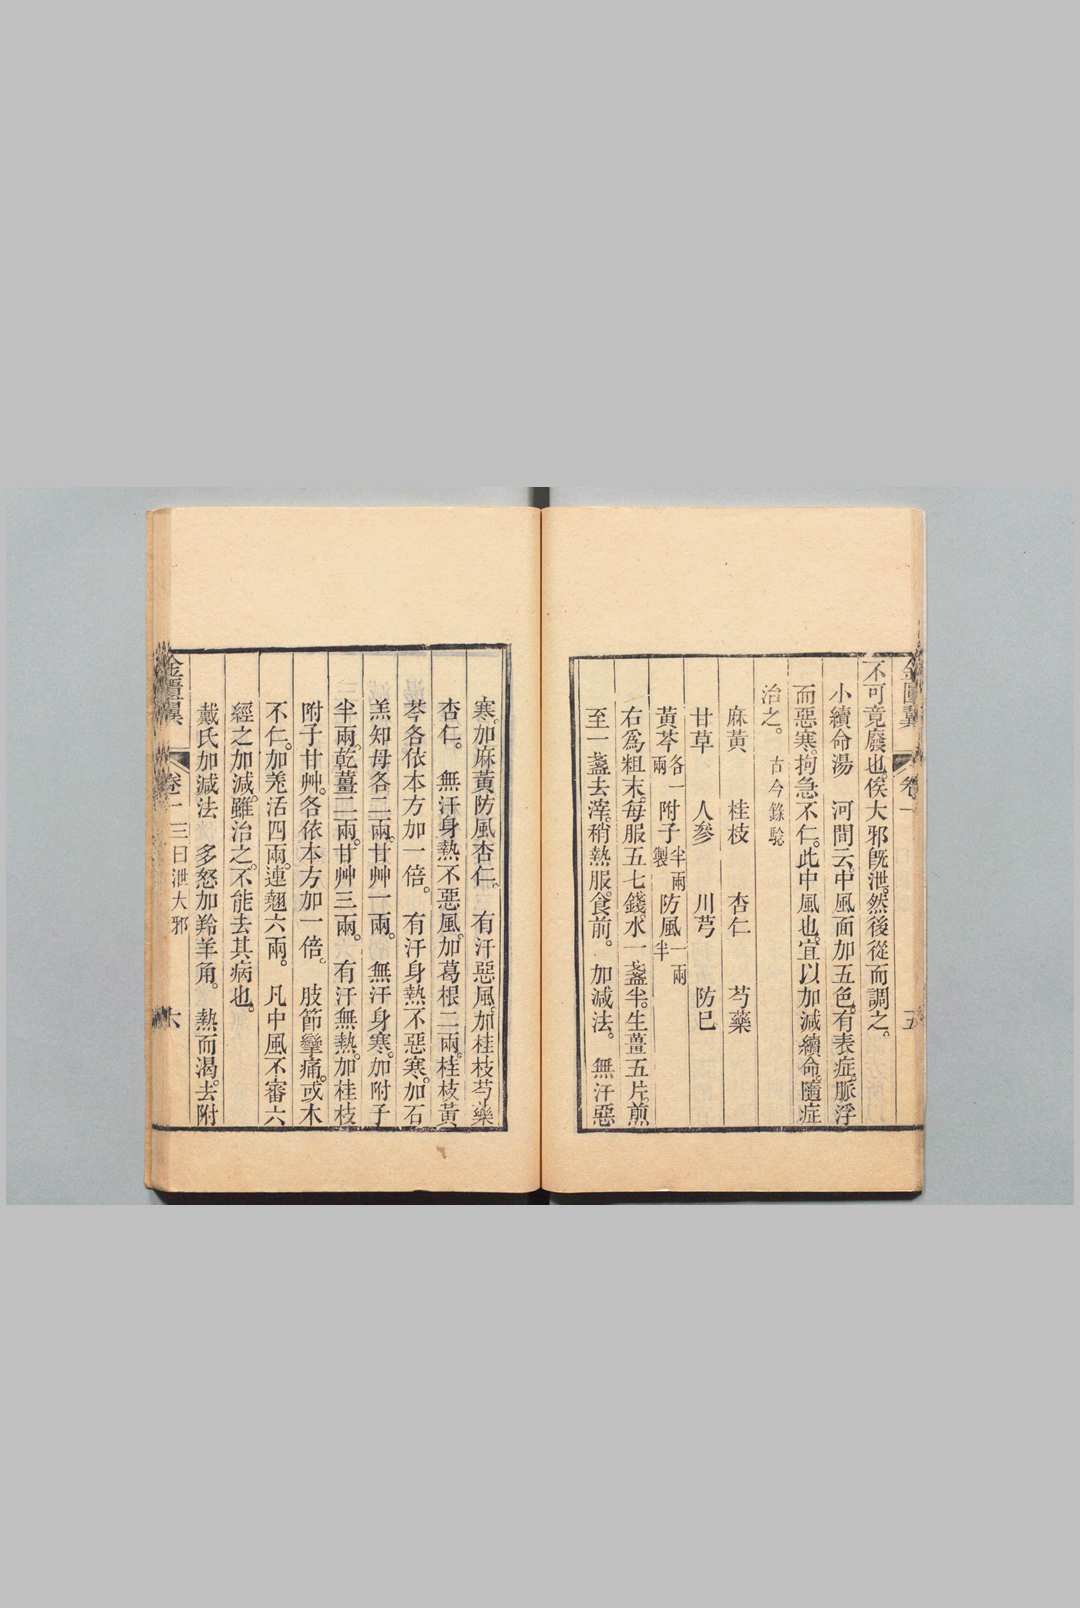 金匱翼 卷一 五
不可竟廢也俟大邪旣泄然後從而調之。
小續命湯 河間云中風面加五色有表症脈浮
而惡寒拘急不仁。此中風也宜以加減續命隨症
治之。 古今錄驗
麻黃 桂枝 杏仁 芍藥
甘草 人參 川芎 防巳
黃芩各一兩 附子半兩製 防風一兩半
右爲粗末每服五七錢水一盞半。生薑五片。煎
至一盞去滓稍熱服。食前。 加減法。 無汗惡
寒。加麻黃防風杏仁。 有汗惡風。加桂枝芍藥
杏仁。 無汗身熱不惡風。加葛根二兩。桂枝黃
芩各依本方加一倍。 有汗身熱不惡寒。加石
羔知母各二兩。甘艸一兩。 無汗身寒。加附子
半兩。乾薑二兩。甘艸三兩。 有汗無熱。加桂枝
附子甘艸。各依本方加一倍。 肢節攣痛。或木
不仁。加羌活四兩。連翹六兩。 凡中風不審六
經之加減。雖治之。不能去其病也。
戴氏加減法 多怒加羚羊角。 熱而渴。去附
金匱翼 卷一 三曰泄大邪 六